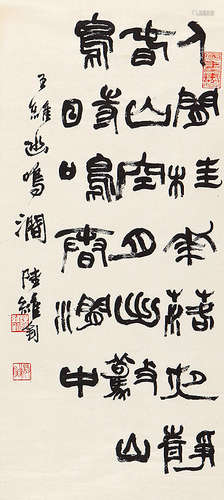 人閒桂華落夜靜
春山空月出驚山
鳥時鳴春澗中
王維幽鳴澗 陸維釗